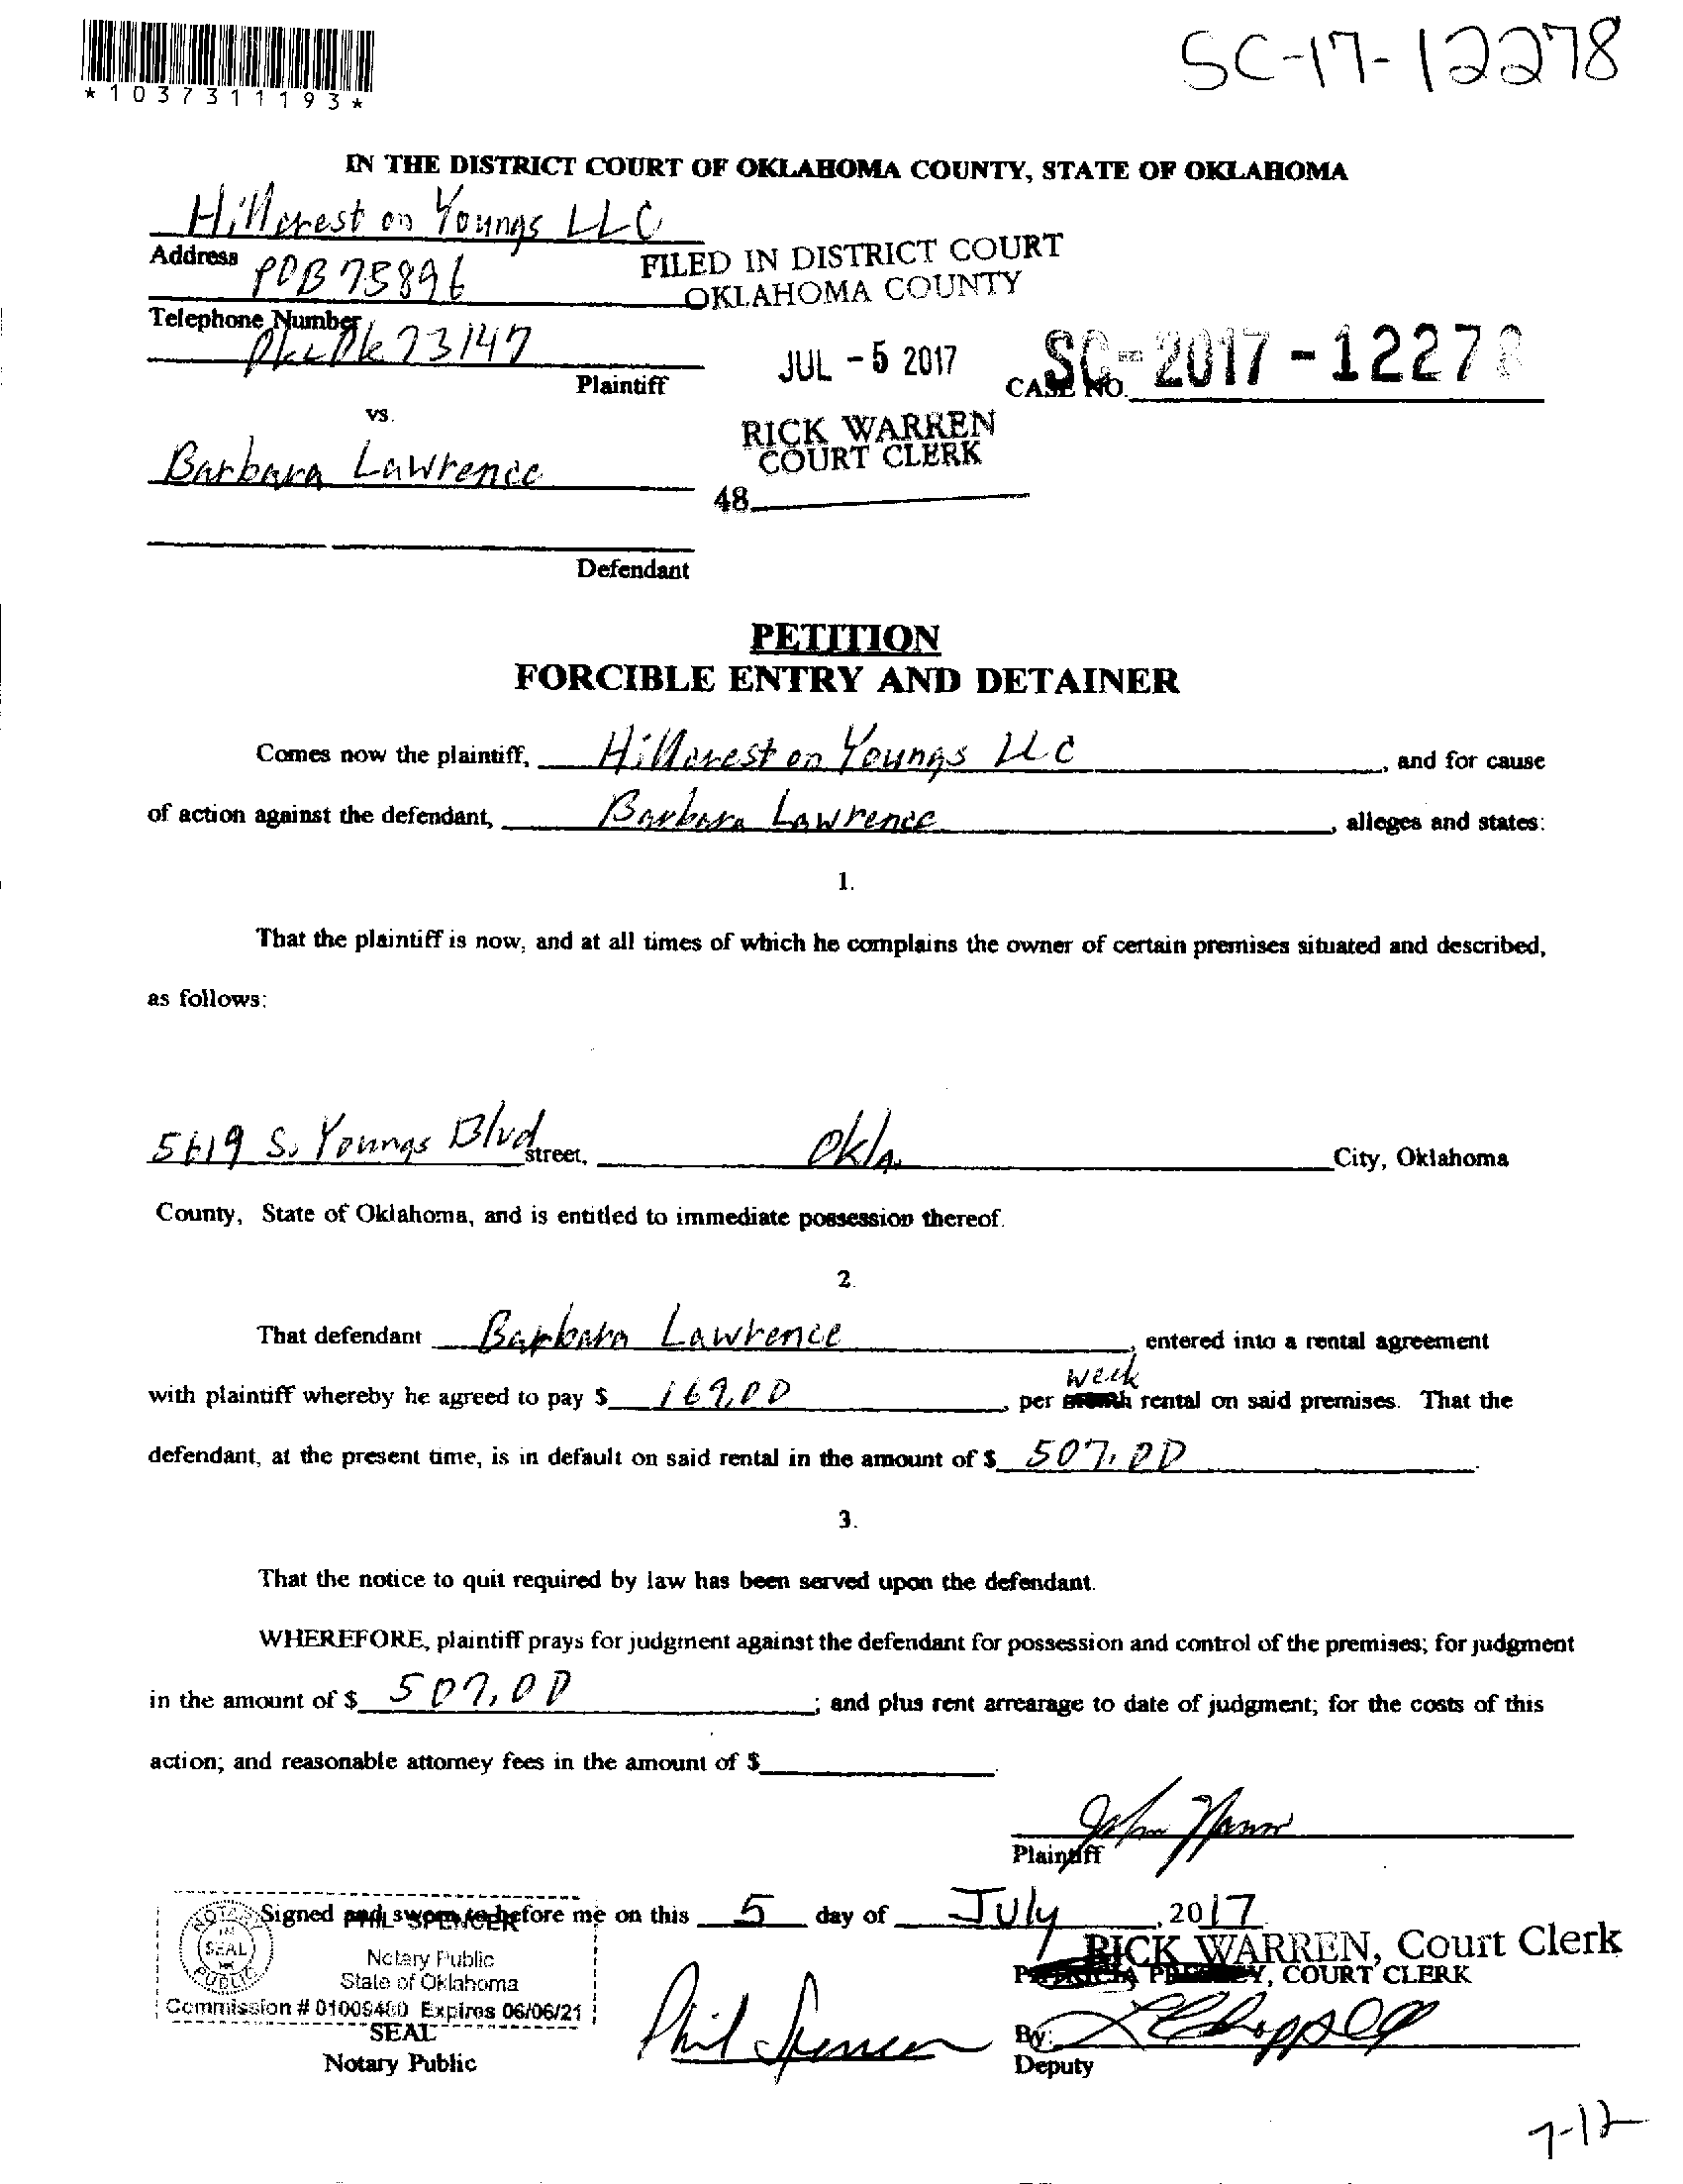 *1037311193*
SC-17-12278
IN THE DISTRICT COURT OF OKLAHOMA COUNTY, STATE OF OKLAHOMA
Hillcrest on Youngs LLC
Address POB 75896
FILED IN DISTRICT COURT
OKLAHOMA COUNTY
Telephone Number
73147
Plaintiff
JUL - 5 2017
CASE NO. SC-2017-12278
vs.
RICK WARREN
COURT CLERK
Barbara Lawrence
48
Defendant
PETITION
FORCIBLE ENTRY AND DETAINER
Comes now the plaintiff, Hillcrest on Youngs LLC, and for cause
of action against the defendant, Barbara Lawrence, alleges and states:
1.
That the plaintiff is now, and at all times of which he complains the owner of certain premises situated and described,
as follows:
5619 S. Youngs Blvd street, Okla. City, Oklahoma
County, State of Oklahoma, and is entitled to immediate possession thereof.
2.
That defendant Barbara Lawrence, entered into a rental agreement
week
with plaintiff whereby he agreed to pay $ 169.00, per month rental on said premises. That the
defendant, at the present time, is in default on said rental in the amount of $ 507.00.
3.
That the notice to quit required by law has been served upon the defendant.
WHEREFORE, plaintiff prays for judgment against the defendant for possession and control of the premises; for judgment
in the amount of $ 507.00; and plus rent arrearage to date of judgment; for the costs of this
action; and reasonable attorney fees in the amount of $
Plaintiff
Signed and sworn to before me on this 5 day of July, 2017
PHIL SPENCER
NOTARY PUBLIC
SEAL
Notary Public
State of Oklahoma
Commission # 01009480 Expires 06/06/21
RICK WARREN, Court Clerk
PATRICIA PRESLEY, COURT CLERK
SEAL
Phil Spencer
By:
Notary Public
Deputy
7-12